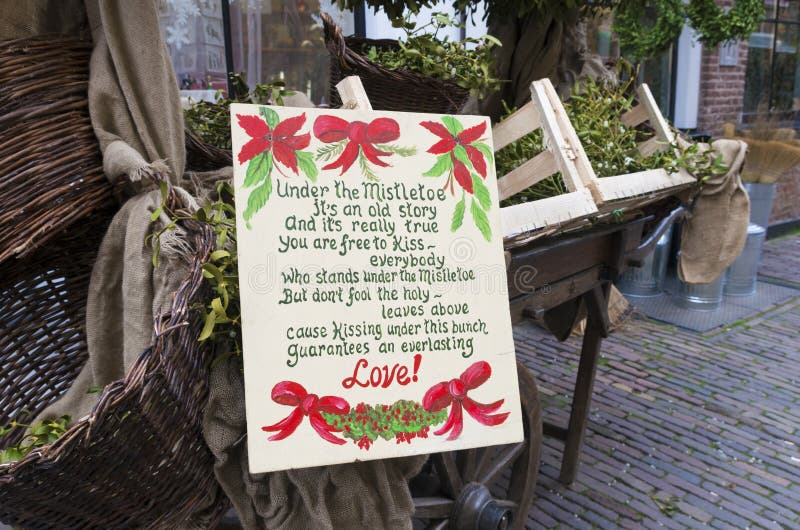 Under the Mistletoe
It's an old story
And it's really true
You are free to Kiss ~
everybody
Who stands under the Mistletoe
But don't fool the holy ~
leaves above
cause Kissing under this bunch
guarantees an everlasting
Love!